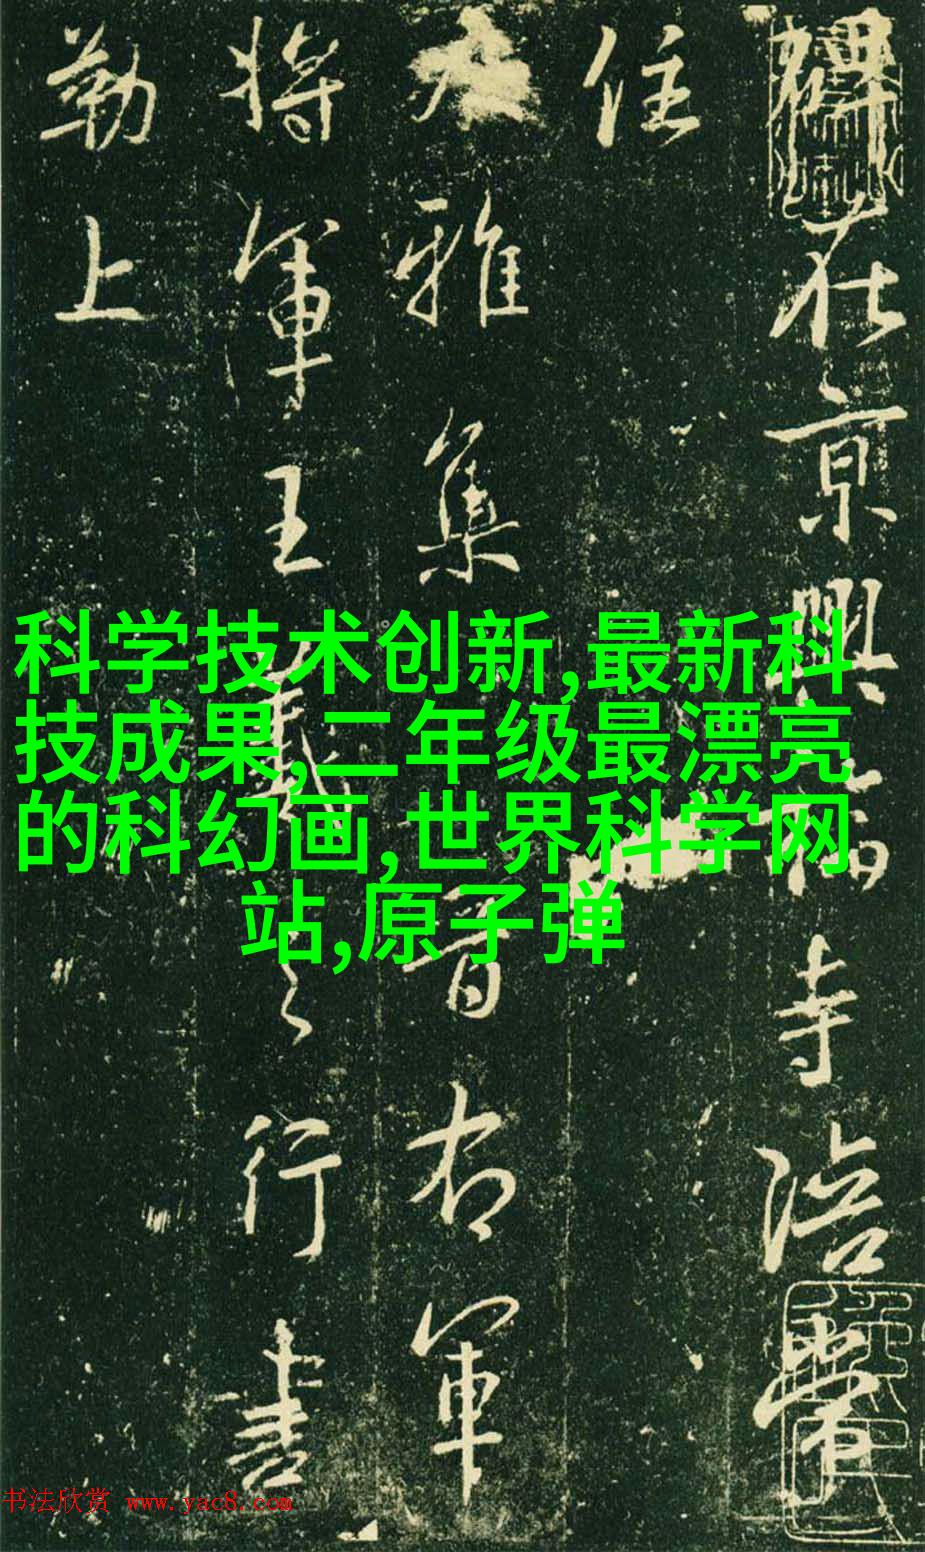 在京興福寺陪常
住
雅集晉右軍
將軍王羲之行書
勒上
科学技术创新,最新科
技成果,二年级最漂亮
的科幻画,世界科学网
站,原子弹
书法欣赏 www.yac8.com